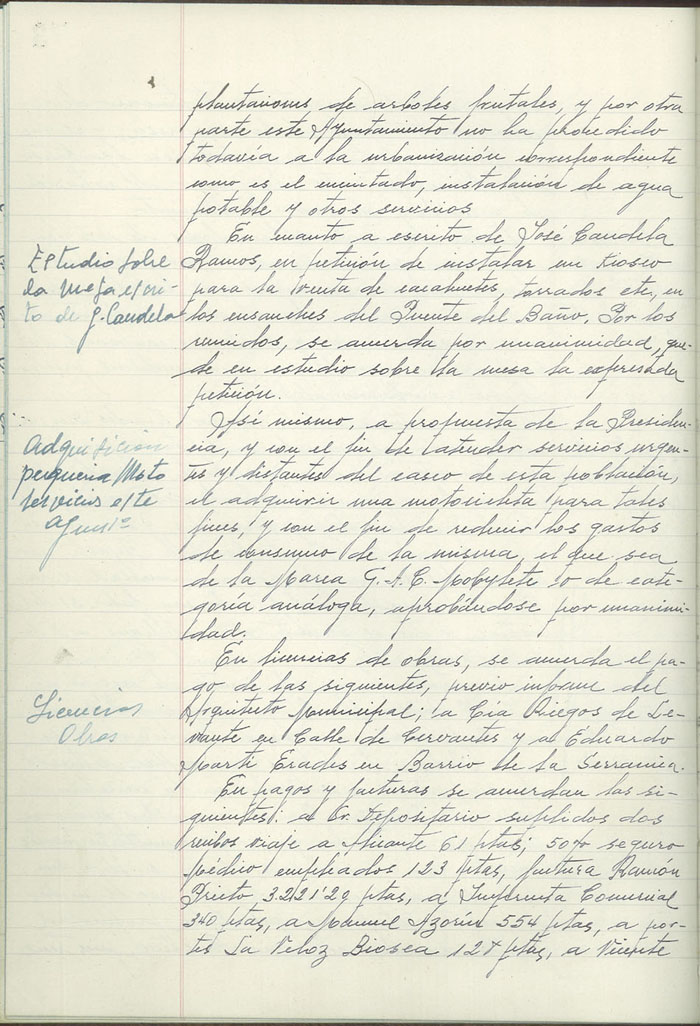 plantaciones de arboles frutales, y por otra
parte este Ayuntamiento no ha procedido
todavía a la urbanización correspondiente
como es el encintado, instalación de agua
potable y otros servicios
Estudio sobre
la mesa escri-
to de J. Candela
En cuanto a escrito de José Candela
Ramos, en petición de instalar un Kiosco
para la venta de cacahuetes, torrados etc, en
los ensanches del Puente del Baño. Por los
reunidos, se acuerda por unanimidad, que-
de en estudio sobre la mesa la expresada
petición.
Adquisición
pequeña Moto
servicios este
Ayunto
Así mismo, a propuesta de la Presiden-
cia, y con el fin de atender servicios urgen-
tes y distantes del casco de esta población,
el adquirir una motocicleta para tales
fines, y con el fin de reducir los gastos
de consumo de la misma, el que sea
de la Marca G.A.C. Mobylete o de cate-
goría análoga, aprobándose por unanimi-
dad.
Licencias
Obras
En licencias de obras, se acuerda el pa-
go de las siguientes, previo informe del
Arquitecto Municipal; la Cía Riegos de Le-
vante en Calle de Cervantes y a Eduardo
Martí Erades en Barrio de la Serranica.
En pagos y facturas se acuerdan las si-
guientes: a Sr. Depositario suplidos dos
recibos viaje a Alicante 61 ptas; 50% seguro
Médico empleados 123 ptas, factura Ramón
Prieto 3.221'29 ptas, a Imprenta Comercial
340 ptas, a Manuel Azorín 554 ptas, a por-
tes La Veloz Biosca 127 ptas, a Vicente